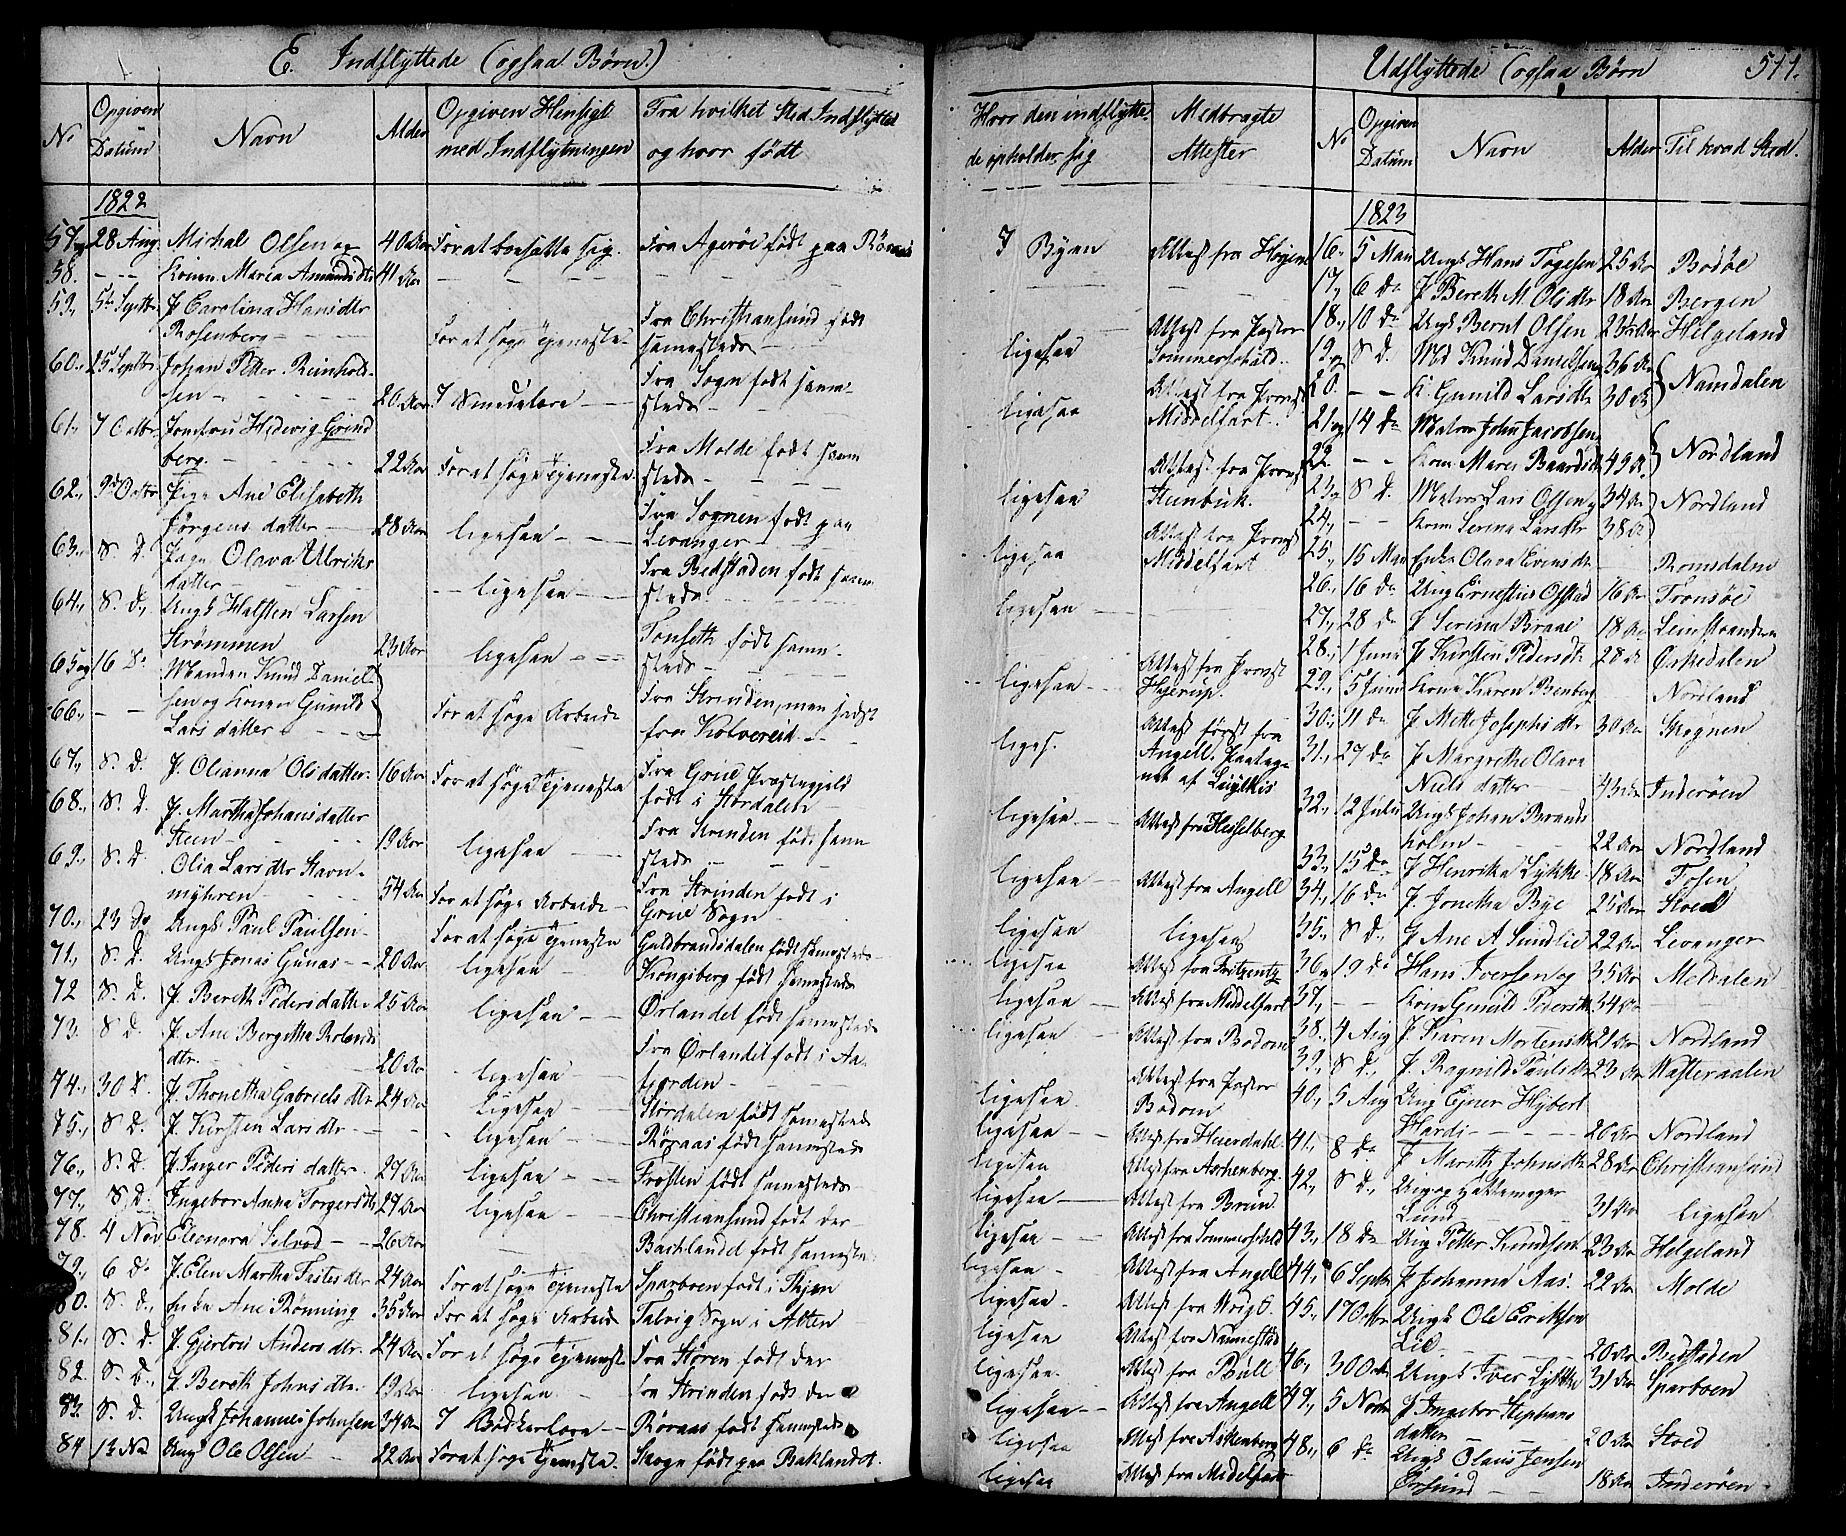 E. Indflyttede (ogsaa Børn.)
Udflyttede (ogsaa Børn
511.
No
Opgiven Datum
Navn
Alder
Opgiven Hensigt med Indflytningen
Fra hvilket Sted Indflyttet og hvor født
Hvor den indflyttede opholder sig
Medbragte Attester
No
Opgiven Datum
Navn
Alder
Til hvad Sted.
1822
57 og 28 Aug. Michal Olsen og 40 Aar For at bosætte sig. Fra Agerøe født paa Røraas I Byen
58. - - Konen Maria Amundsdtr 41 Aar
59, 5te Septbr. P. Carolina Hansdtr
Rosenberg - For at søge Tjeneste Fra Christiansund født
samesteds - ligesaa Attest fra Pastor
Sommerschild.
60., 25 Septbr. Johan Petter Reinholdsen
- 20 Aar I Smedelære Fra Sogn født samesteds
- ligesaa Attest fra Provst
Middelfart.
61., 7 Octbr. Jomfru Hedevig Grindberg.
- 22 Aar For at søge Tjeneste Fra Molde født samesteds
- ligesaa Attest fra Provst
Steenbuk.
62., 9d Octbr. Pige Ane Elisabeth
Jørgensdatter - 28 Aar ligesaa - Fra Sognen født paa
Levanger - ligesaa Attest fra Provst
Middelfart
63., S. D. Pige Olava Ulriksdatter
- ligesaa - Fra Bedstaden født samesteds
- ligesaa
64., S. D., Ungk Halsten Larsen
Strømmen 23 Aar ligesaa - Tonseth født samesteds
- ligesaa Attest fra Provst
65 og 16 Do Manden Knud Danielsen
og Konen Gunild
66., - - Larsdatter - For at søge Arbeide Fra Strinden, men sidst
fra Kolvereid - liges. Attest først fra
Angell.
67., S. D. P. Olianna Olsdatter. 16 Aar For at søge Tjeneste Fra Grue Præstegjeld
født i Stordalen - ligesaa Attest fra Hesselberg
68., S. D. P. Martha Johansdatter
Steen - 19 Aar ligesaa - Fra Strinden født samesteds
- ligesaa Attest fra Angell
69., S. D. Olia Larsdtr Stavnmyhren
- 54 Aar For at søge Arbeide Fra Strinden født i
Grue Sogn - ligesaa ligesaa
70., 23 Do Ungk Paul Paulsen - For at søge Tjeneste Guldbrandsdalen født samestedes ligesaa Attest fra
71., S. D. Ungk Jonas Gunas - 20 Aar ligesaa - Kongsberg født samesteds ligesaa Attest fra Middelfart
72 S. D. P. Bereth Pedersdatter 25 Aar ligesaa - Ørlandet født samesteds ligesaa Attest fra Bodom
73. S D. P. Ane Bergitha Rolandsdtr.
- 20 Aar ligesaa - Fra Ørlandet født i Aafjorden
- ligesaa Attest fra Pastor
Bodom
74., 30 D. P. Thonetha Gabrielsdtr 24 Aar ligesaa - Størdalen født samesteds ligesaa Attest fra Heierdahl
75., S. D. P. Kirsten Larsdtr - ligesaa - Røraas født samesteds ligesaa Attest fra Aschenberg.
76., S. D. P. Inger Pedersdatter. 27 Aar ligesaa - Frosten født samesteds ligesaa Attest fra Brun.
77., S D. Ingebor Anna Torgersdtr 27 Aar ligesaa - Christiansund født der - ligesaa Attest fra Sommerschild
78. 4 Nov Eleonora - 26 Aar - Baklandet født samesteds ligesaa Attest fra Angell
79., 6 D. P. Elen Martha 24 Aar For at søge Tjeneste Sparboen født i Skjen ligesaa Attest fra
80. S. D., Enke Ane Rønning 35 Aar For at søge Arbeide Talvig Sogn i Alten ligesaa Attest fra Nannestad
81., S. D. P. Gjertru Andersdtr. 24 Aar For at søge Tjeneste Fra Støren født der ligesaa Attest fra Bull
82. S. D., P. Bereth Johnsdtr. 19 Aar ligesaa. - Fra Strinden født der ligesaa Attest fra Angell
83. S. D. Ungk Johannes Johnsen 34 Aar I Bødkerlære - Røraas født samesteds ligesaa Attest fra Aschenberg
84 13 No Ungk Ole Olsen - 22 Aar For at søge Tjeneste. Skogn født paa Baklandet. ligesaa Attest fra Midelfart
1823
16. 5 Mai Ungk Hans Togesen 25 Ar Bodøe
17, 6 do P Bereth M. Olsdtr 18 Ar Bergen
18., 10 do Ungk Bernt Olsen 23 Aar Helgeland
19 og S D. Md Knud Danielsen 36 Ar
20. - - K. Gunild Larsdtr 30 Ar } Namdalen
21 og 14 do Matros John Jacobsen
22. - - Kone Maren Baardsdtr 49 Ar } Nordland
23 og S D. Matros Lars Olsen og 34 Ar
24., - - Kone Serina Larsdtr 38 Ar Nordland
25., 15 Mai Enke Olava Evensdtr - Romsdalen
26., 16 do Ung Ernestius Ofstad 16 Ar Tromsøe
27., 28 do P Serina Braae 18 Ar Leinstranden
28., 1 Juni P Kirsten Pedersdtr 28 Ar Orkedalen
29., 5 Juni Kone Karen Renberg Nordland
30., 11 do P Mette Josephsdtr 30 Ar Skognen
31., 27 do P Margrethe Olava
Nielsdatter - 43 Ar Inderøen
32., 12 Juli Ungk Johan Brandsholm
- 22 Aar Nordland
33., 15 do P Henrika Lykke 18 Aar Fosen
34., 16 do P. Jonetha Bye 25 Aar Stoed
35., S D., P Ane A Sundlie 22 Ar Levanger
36 og 19 do Hans Iversen og 35 Ar Meldalen
37., - - Kone Gunild Pedersdtr 34 Ar
38., 4 Aug P Karen Mortensdtr 21 Ar Nordland
39., S D., P. Ragnild Paulsdtr 23 Ar Westeraalen
40., 5 Aug Ung Ejner Hybert
Hardi - 26 Ar Nordland
41., 8 do P Marith Johnsdtr 28 Ar Christiansund
42., S D.,
Lund - 31 Ar ligesaa
43., 18 do Ung Petter Knudsen 23 Ar Helgeland
44., 6 Septbr P Johanna Aas. 22 Ar Molde
45., 17 Octbr Ungk Ole Eriksen
Lie - 20 Ar Bedstaden
46., 30 Octbr Ungk Iver Lykke 31 Ar Sparboen
47, 5 Novbr P Ingebor Stephansdatter
20 Ar Stoed
48., 6 do Ungk Olaus Jensen
- 18 Ar Inderøen